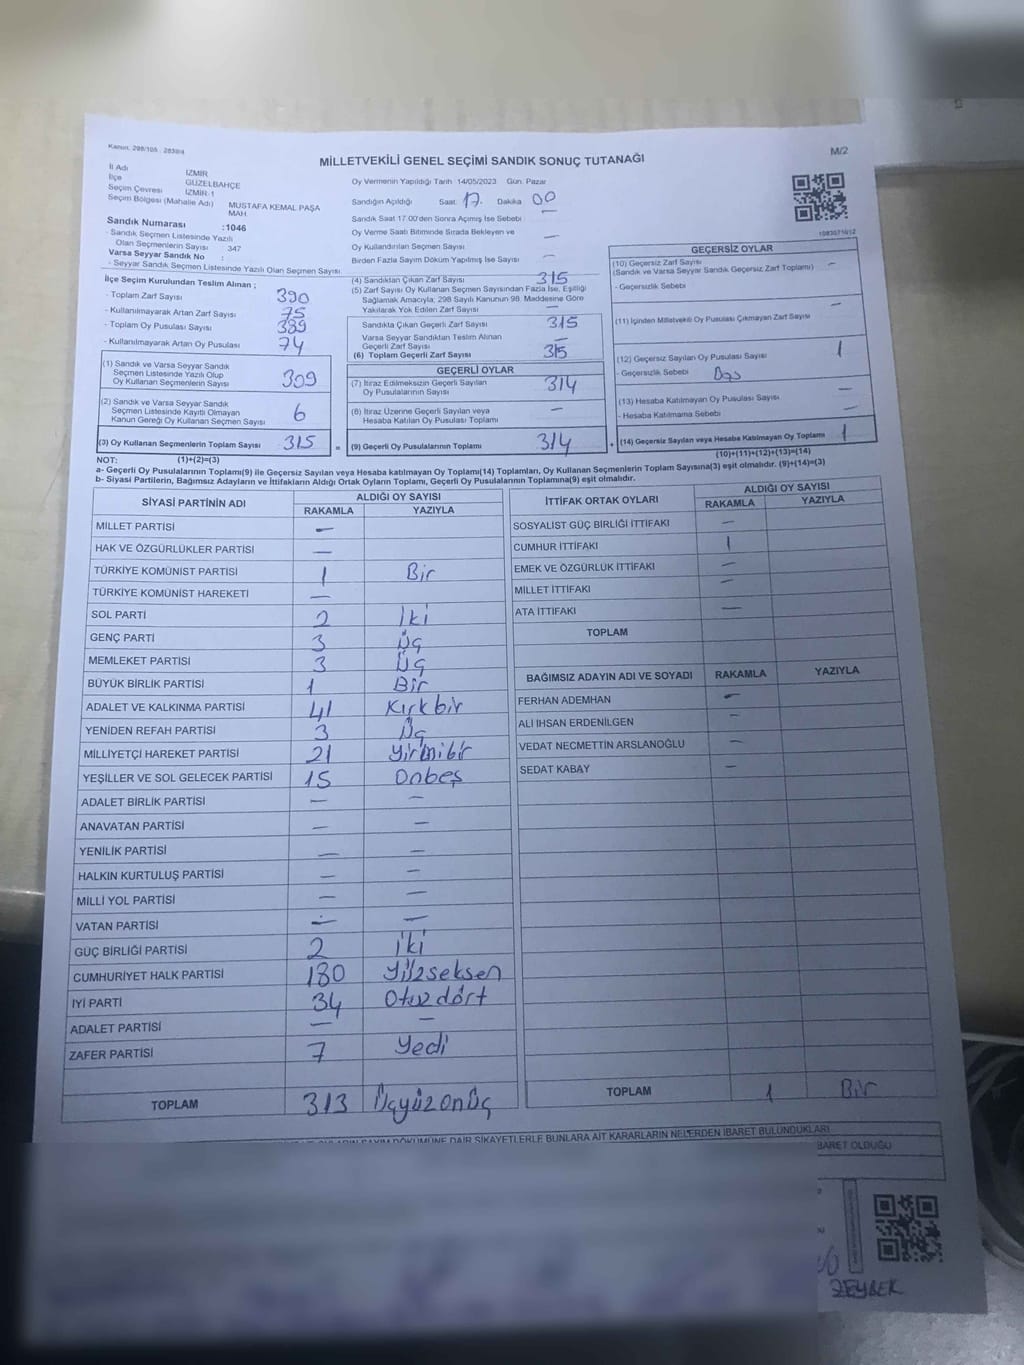 Kanun: 298/105 - 2839/4
MİLLETVEKİLİ GENEL SEÇİMİ SANDIK SONUÇ TUTANAĞI
M/2
İl Adı İZMİR
İlçe GÜZELBAHÇE
Seçim Çevresi İZMİR 1
Seçim Bölgesi (Mahalle Adı) MUSTAFA KEMAL PAŞA MAH.
Sandık Numarası :1046
- Sandık Seçmen Listesinde Yazılı
Olan Seçmenlerin Sayısı 347
Varsa Seyyar Sandık No :
- Seyyar Sandık Seçmen Listesinde Yazılı Olan Seçmen Sayısı
Oy Vermenin Yapıldığı Tarih 14/05/2023 Gün: Pazar
Sandığın Açıldığı Saat: 17. Dakika 00
Sandık Saat 17.00'den Sonra Açımış İse Sebebi —
Oy Verme Saati Bitiminde Sırada Bekleyen ve
Oy Kullandırılan Seçmen Sayısı —
Birden Fazla Sayım Döküm Yapılmış İse Sayısı —
İlçe Seçim Kurulundan Teslim Alınan ;
- Toplam Zarf Sayısı 390
- Kullanılmayarak Artan Zarf Sayısı 75
- Toplam Oy Pusulası Sayısı 389
- Kullanılmayarak Artan Oy Pusulası 74
(1) Sandık ve Varsa Seyyar Sandık
Seçmen Listesinde Yazılı Olup
Oy Kullanan Seçmenlerin Sayısı 309
(2) Sandık ve Varsa Seyyar Sandık
Seçmen Listesinde Kayıtlı Olmayan
Kanun Gereği Oy Kullanan Seçmen Sayısı 6
(3) Oy Kullanan Seçmenlerin Toplam Sayısı 315 =
(1)+(2)=(3)
(4) Sandıktan Çıkan Zarf Sayısı 315
(5) Zarf Sayısı Oy Kullanan Seçmen Sayısından Fazla İse, Eşitliği
Sağlamak Amacıyla, 298 Sayılı Kanunun 98. Maddesine Göre
Yakılarak Yok Edilen Zarf Sayısı —
Sandıkta Çıkan Geçerli Zarf Sayısı 315
Varsa Seyyar Sandıktan Teslim Alınan
Geçerli Zarf Sayısı —
(6) Toplam Geçerli Zarf Sayısı 315
GEÇERLİ OYLAR
(7) İtiraz Edilmeksizin Geçerli Sayılan
Oy Pusulalarının Sayısı 314
(8) İtiraz Üzerine Geçerli Sayılan veya
Hesaba Katılan Oy Pusulası Toplamı —
(9) Geçerli Oy Pusulalarının Toplamı 314 +
GEÇERSİZ OYLAR
(10) Geçersiz Zarf Sayısı —
(Sandık ve Varsa Seyyar Sandık Geçersiz Zarf Toplamı)
- Geçersizlik Sebebi
(11) İçinden Milletvekili Oy Pusulası Çıkmayan Zarf Sayısı —
(12) Geçersiz Sayılan Oy Pusulası Sayısı 1
- Geçersizlik Sebebi Boş
(13) Hesaba Katılmayan Oy Pusulası Sayısı —
- Hesaba Katılmama Sebebi —
(14) Geçersiz Sayılan veya Hesaba Katılmayan Oy Toplamı 1
(10)+(11)+(12)+(13)=(14)
NOT:
a- Geçerli Oy Pusulalarının Toplamı(9) ile Geçersiz Sayılan veya Hesaba katılmayan Oy Toplamı(14) Toplamları, Oy Kullanan Seçmenlerin Toplam Sayısına(3) eşit olmalıdır. (9)+(14)=(3)
b- Siyasi Partilerin, Bağımsız Adayların ve İttifakların Aldığı Ortak Oyların Toplamı, Geçerli Oy Pusulalarının Toplamına(9) eşit olmalıdır.
SİYASİ PARTİNİN ADI ALDIĞI OY SAYISI
RAKAMLA YAZIYLA
MİLLET PARTİSİ —
HAK VE ÖZGÜRLÜKLER PARTİSİ —
TÜRKİYE KOMÜNİST PARTİSİ 1 Bir
TÜRKİYE KOMÜNİST HAREKETİ —
SOL PARTİ 2 İki
GENÇ PARTİ 3 Üç
MEMLEKET PARTİSİ 3 Üç
BÜYÜK BİRLİK PARTİSİ 1 Bir
ADALET VE KALKINMA PARTİSİ 41 Kırkbir
YENİDEN REFAH PARTİSİ 3 Üç
MİLLİYETÇİ HAREKET PARTİSİ 21 Yirmibir
YEŞİLLER VE SOL GELECEK PARTİSİ 15 Onbeş
ADALET BİRLİK PARTİSİ — —
ANAVATAN PARTİSİ — —
YENİLİK PARTİSİ — —
HALKIN KURTULUŞ PARTİSİ — —
MİLLİ YOL PARTİSİ — —
VATAN PARTİSİ — —
GÜÇ BİRLİĞİ PARTİSİ 2 İki
CUMHURİYET HALK PARTİSİ 180 Yüzseksen
İYİ PARTİ 34 Otuzdört
ADALET PARTİSİ — —
ZAFER PARTİSİ 7 Yedi
TOPLAM 313 Üçyüzonüç
İTTİFAK ORTAK OYLARI ALDIĞI OY SAYISI
RAKAMLA YAZIYLA
SOSYALİST GÜÇ BİRLİĞİ İTTİFAKI —
CUMHUR İTTİFAKI 1
EMEK VE ÖZGÜRLÜK İTTİFAKI —
MİLLET İTTİFAKI —
ATA İTTİFAKI —
TOPLAM
BAĞIMSIZ ADAYIN ADI VE SOYADI RAKAMLA YAZIYLA
FERHAN ADEMHAN —
ALİ İHSAN ERDENİLGEN —
VEDAT NECMETTİN ARSLANOĞLU —
SEDAT KABAY —
TOPLAM 1 Bir
DÖKÜMÜNE DAİR ŞİKAYETLERLE BUNLARA AİT KARARLARIN NELERDEN İBARET BULUNDUKLARI
BARET OLDUĞU
ZEYBEK